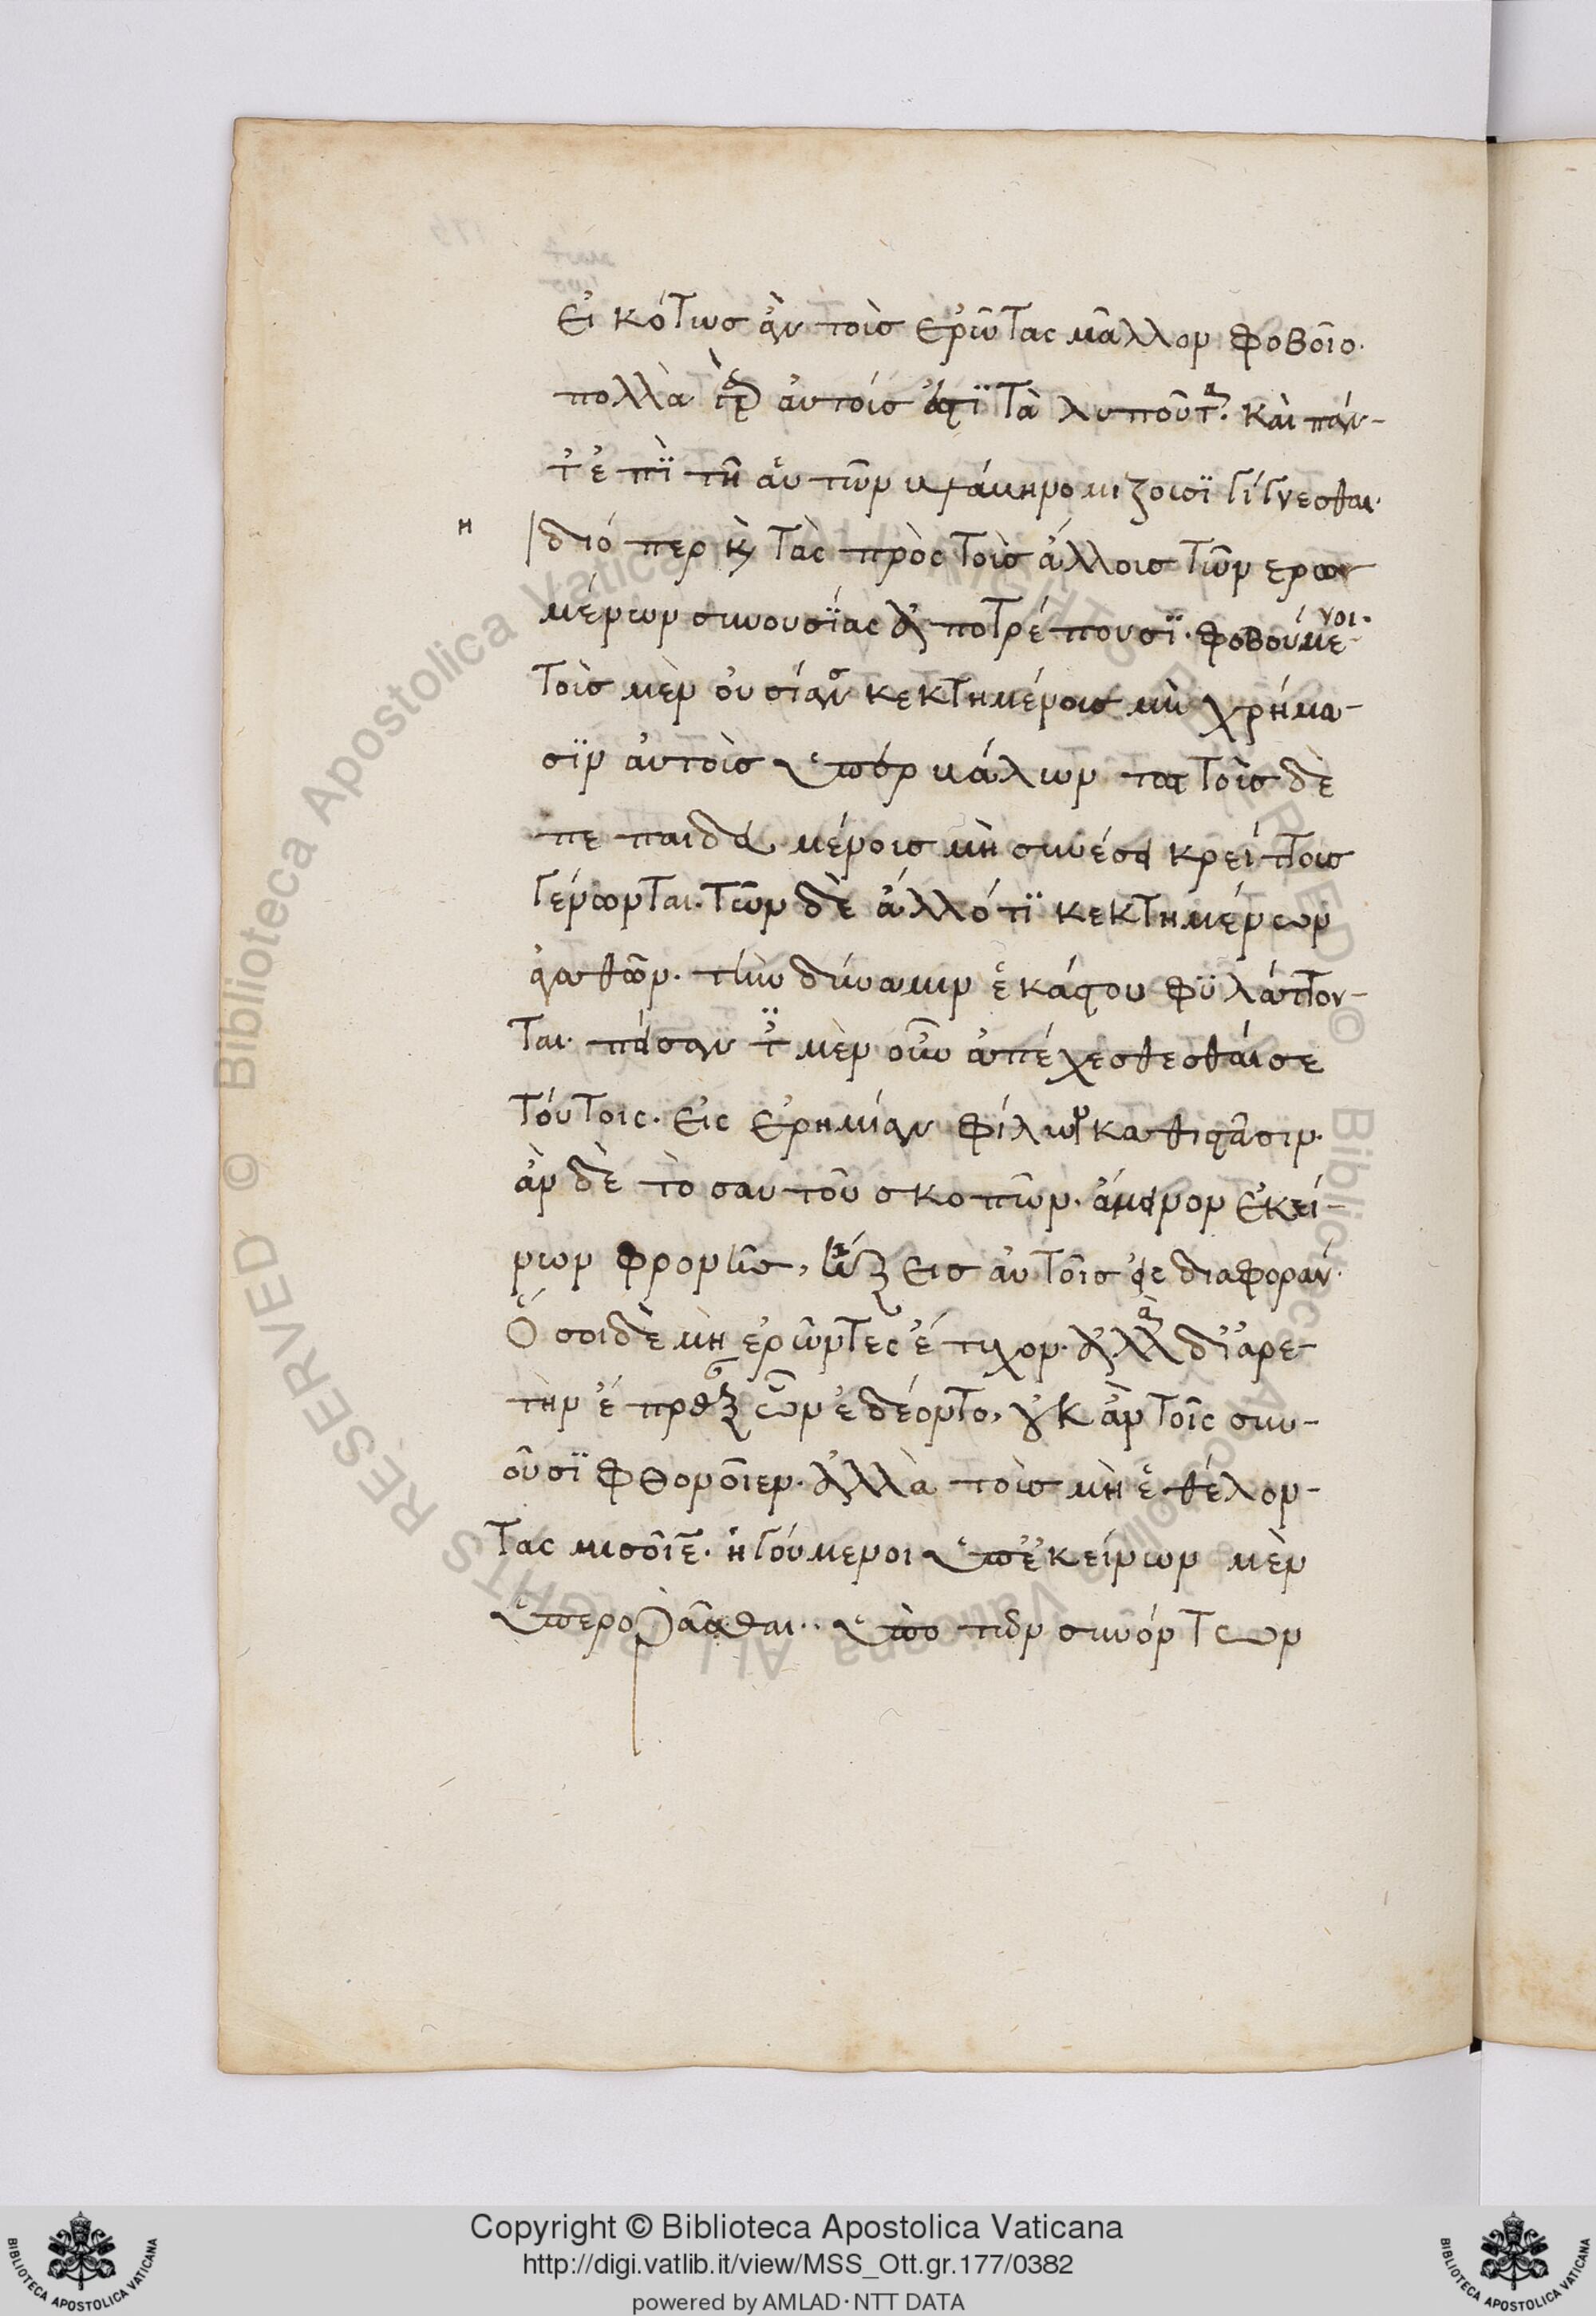 εἰκότως ἂν τοὺς ἐρῶντας μᾶλλον φοβοῖο.
πολλὰ γὰρ αὐτούς ἐστι τὰ λυποῦντα. καὶ πάν-
τ' ἐπὶ τῇ αὑτῶν βλάβῃ νομίζουσι γίγνεσθαι.
η
διόπερ καὶ τὰς πρὸς τοὺς ἄλλους τῶν ερω
μένων συνουσίας ἀποτρέπουσι. φοβούμενοι.
τοὺς μὲν οὐσίαν κεκτημένους μὴ χρήμα-
σιν αὐτοὺς ὑπερβάλωνται τοὺς δὲ
πεπαιδευμένους μὴ συνέσει κρείττους
γένωνται. τῶν δὲ ἄλλό τι κεκτημένων
ἀγαθῶν. τὴν δύναμιν ἑκάστου φυλάττον-
ται. πείσαντ μὲν οὖν ἀπέχεσθεσθαί σε
τούτοις. εἰς ἐρημίαν φίλων καθιστᾶσιν.
ἂν δὲ τὸ σαυτοῦ σκοπῶν. ἄμεινον ἐκεί-
νων φρονῇς, ἥξεις αὐτοῖς εἰς διαφοράν.
Ὅσοι δὲ μὴ ἐρῶντες ἔτυχον. ἀλλὰ δι' ἀρε-
τὴν ἔπραξαν ὧν ἐδέοντο, οὐκ ἂν τοῖς συν-
οῦσι φθονοῖεν. ἀλλὰ τοὺς μὴ ἐθέλον-
τας μισοῖεν. ἡγούμενοι ὑπ' ἐκείνων μὲν
ὑπερορᾶσθαι. ὑπὸ τῶν συνόντων
Copyright © Biblioteca Apostolica Vaticana
http://digi.vatlib.it/view/MSS_Ott.gr.177/0382
powered by AMLAD·NTT DATA
BIBLIOTECA APOSTOLICA VATICANA
BIBLIOTECA APOSTOLICA VATICANA